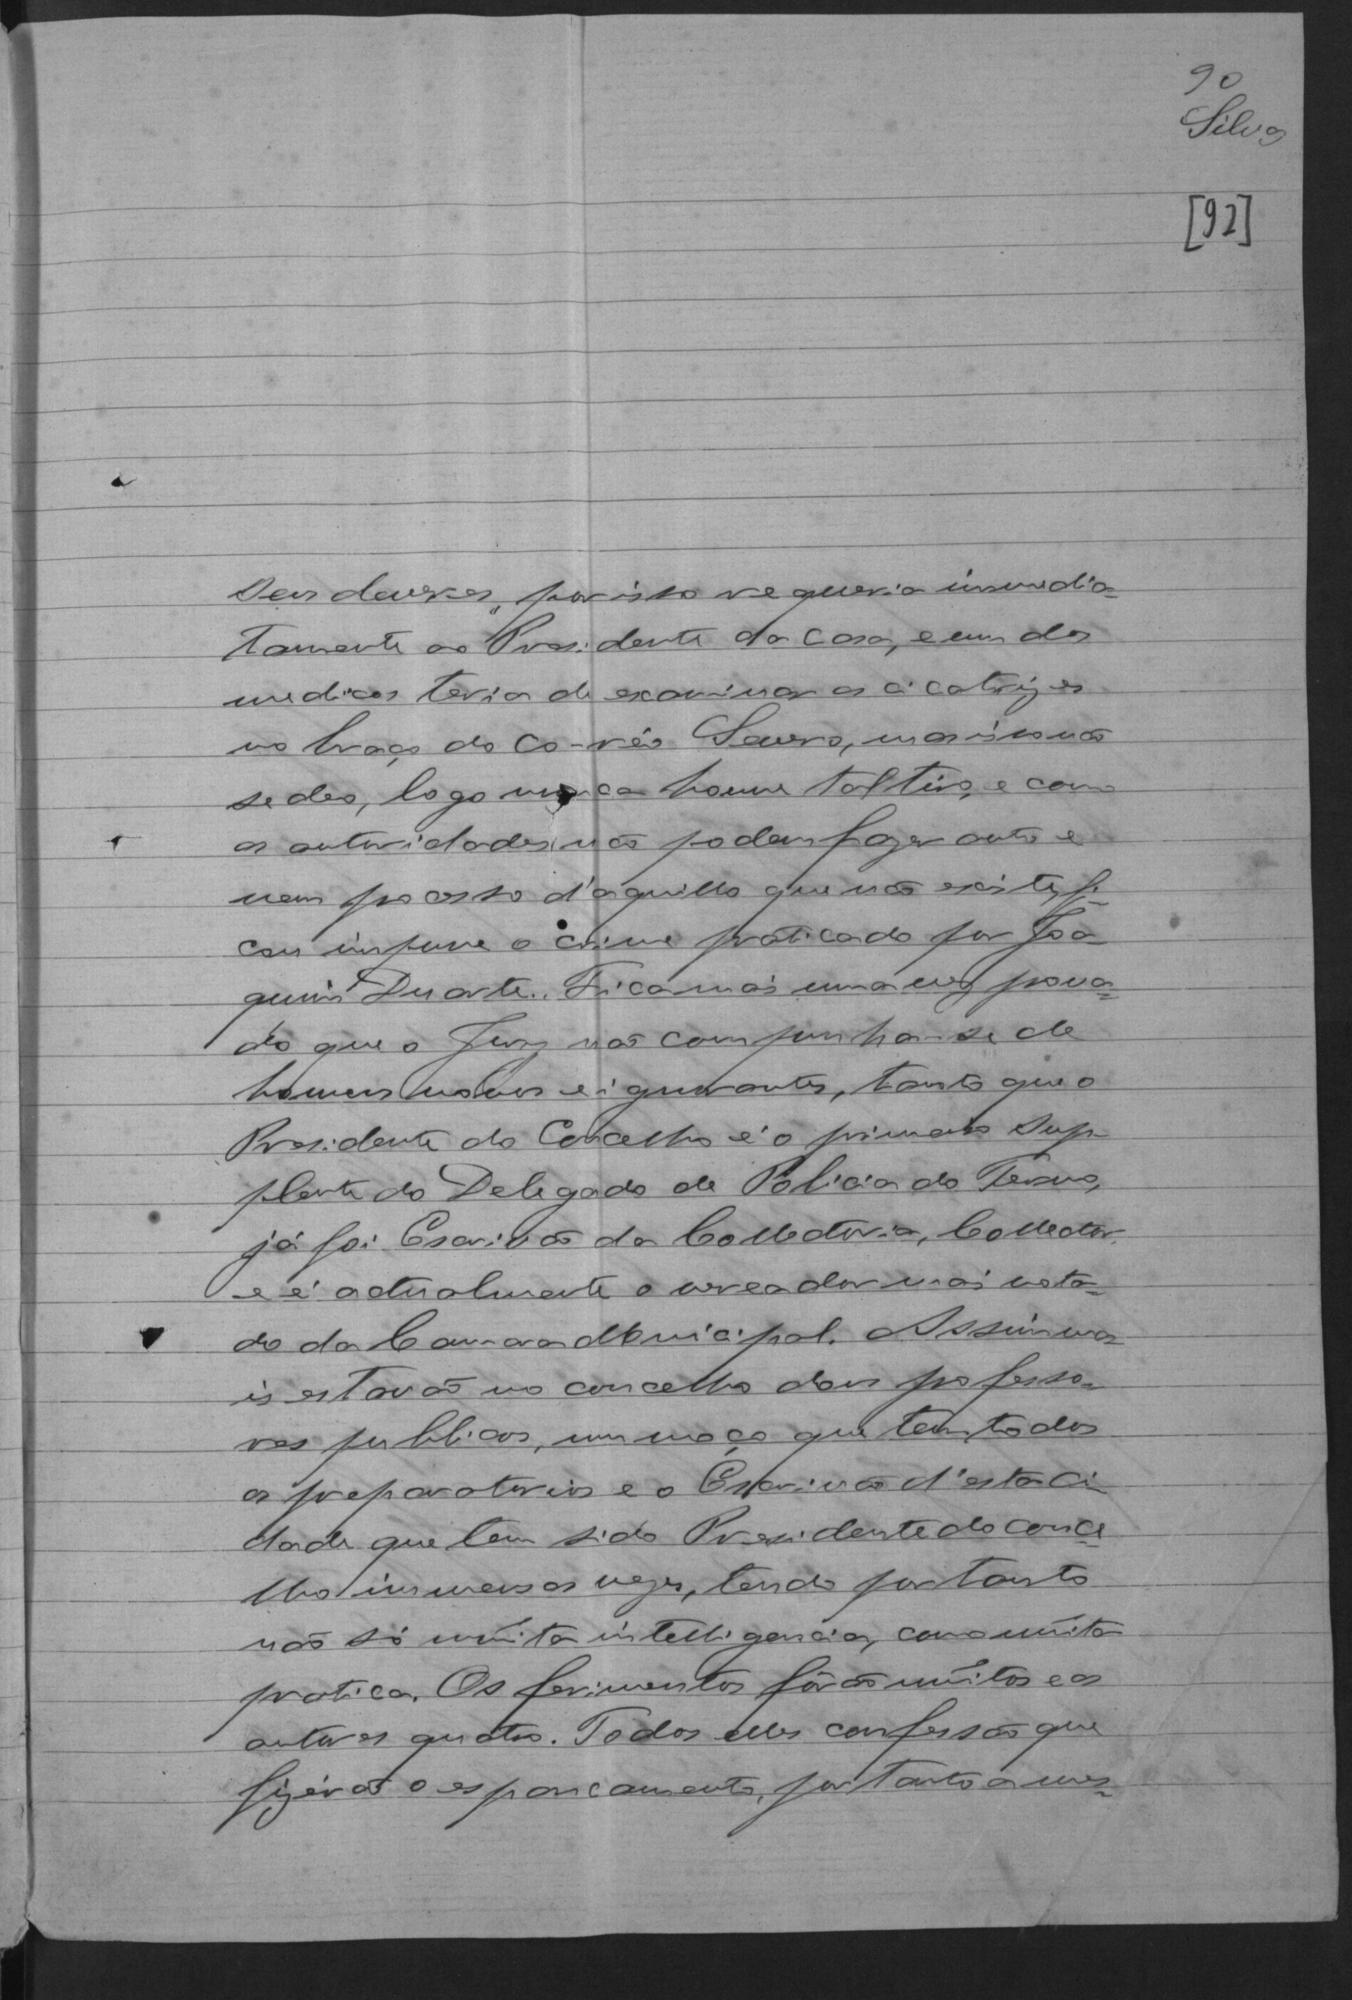 90
Silva
[92]
seus deveres, por isso requeria immedia-
tamente ao Presidente da Casa, e um dos
medicos teria de examinar as cicatrizes
no braço do co-réo Severo, mas isso não
se deo, logo nunca houve tal tiro, e como
as autoridades não podem fazer auto e
nem processo d'aquillo que não existe, fi-
cou impune o crime praticado por Joa-
quim Duarte. Fica mais uma vez prova-
do que o Jury não compunha-se de
homens novos e ignorantes, tanto que o
Presidente do Concelho é o primeiro sup-
plente do Delegado de Policia do Termo,
já foi Escrivão da Collectoria, Collector,
e é actualmente o vereador mais vota-
do da Camara Municipal. Assim ma-
is estavão no concelho dous professo-
res publicos, um moço que tem todos
os preparatorios e o Escrivão d'esta Ci-
dade que tem sido Presidente do conce-
lho immensas vezes, tendo portanto
não só muita intelligencia, como muita
pratica. Os ferimentos fôrão muitos e os
autores quatro. Todos elles confessão que
fizérão o espancamento, portanto a mes-